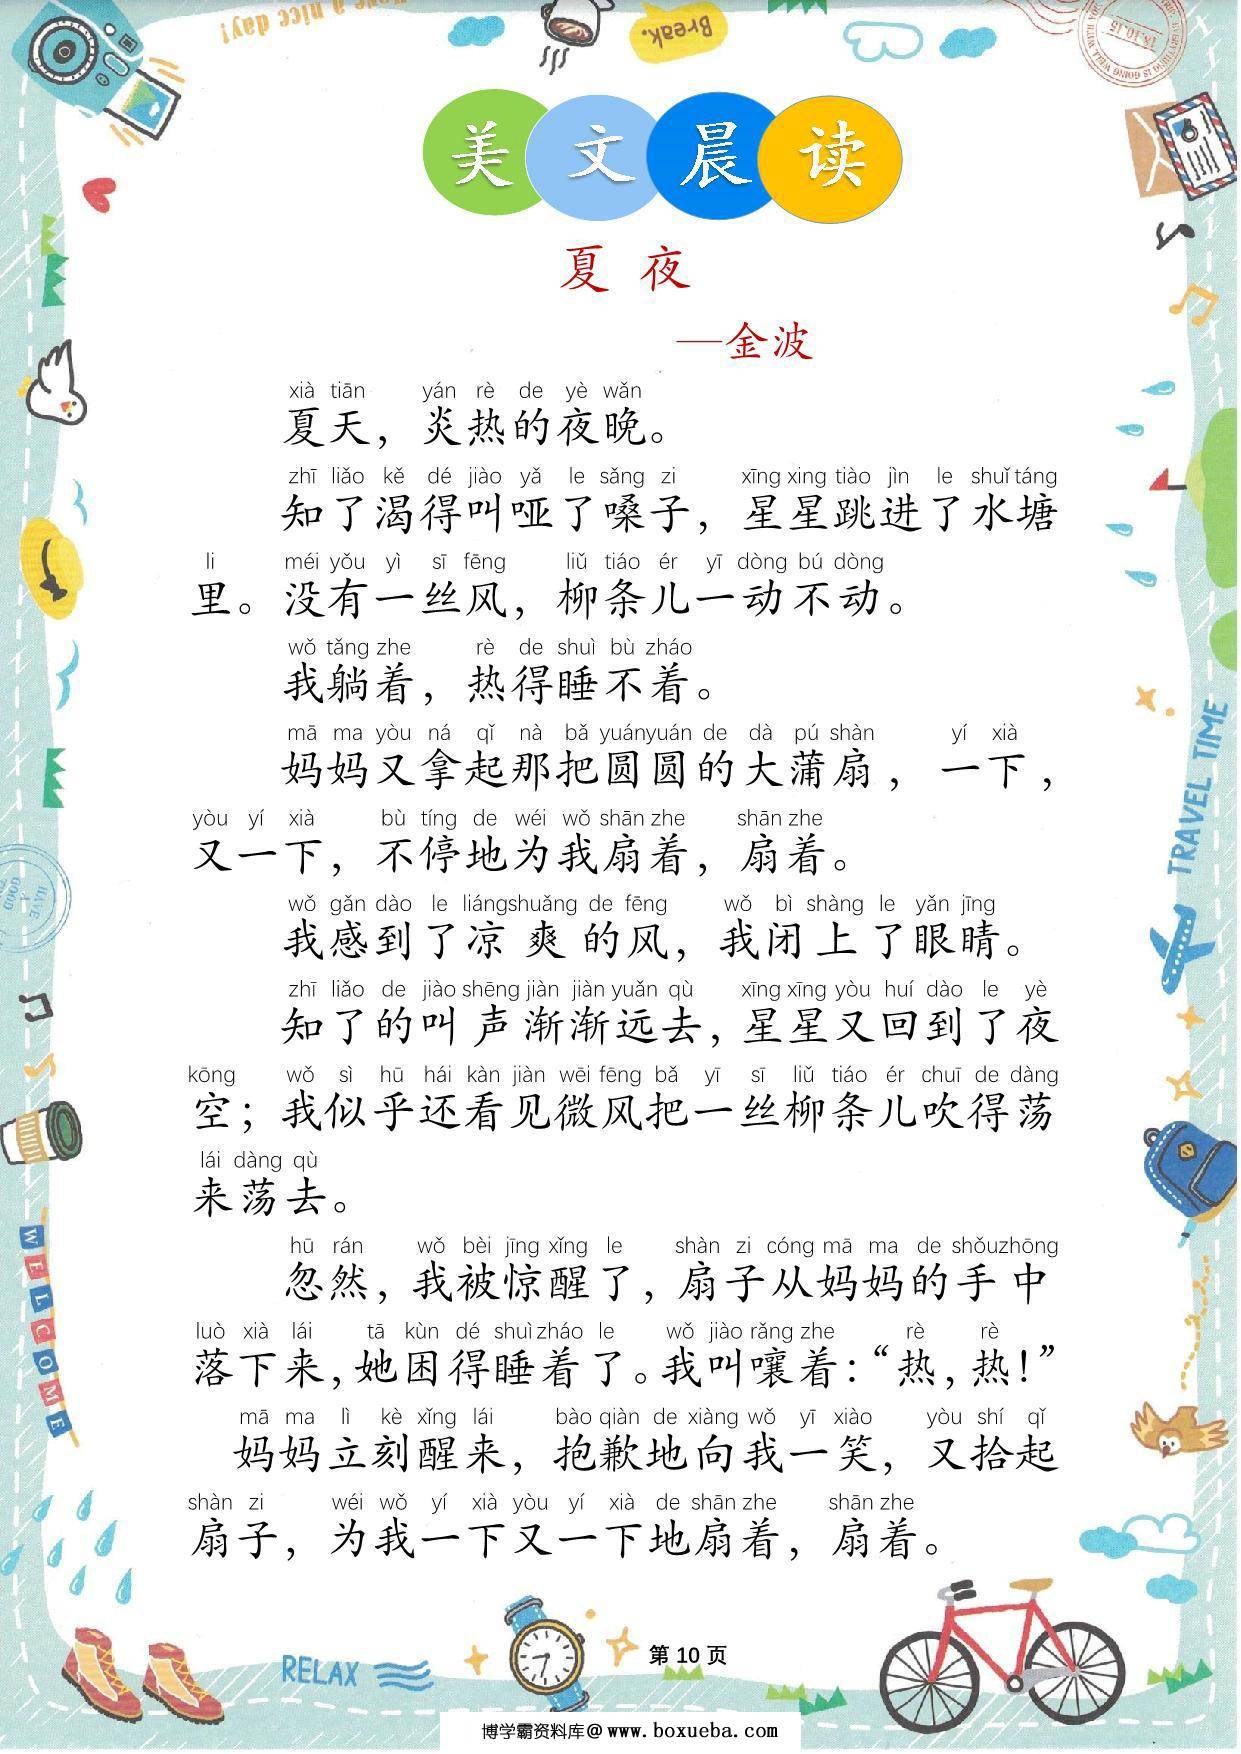 Have a nice day!
Break.
美文晨读
夏 夜
—金波
xià tiān yán rè de yè wǎn
夏天，炎热的夜晚。
zhī liǎo kě dé jiào yǎ le sǎng zi xīng xing tiào jìn le shuǐ táng
知了渴得叫哑了嗓子，星星跳进了水塘
li méi yǒu yì sī fēng liǔ tiáo ér yī dòng bú dòng
里。没有一丝风，柳条儿一动不动。
wǒ tǎng zhe rè de shuì bù zháo
我躺着，热得睡不着。
mā ma yòu ná qǐ nà bǎ yuányuán de dà pú shàn yí xià
妈妈又拿起那把圆圆的大蒲扇，一下，
yòu yí xià bù tíng de wéi wǒ shān zhe shān zhe
又一下，不停地为我扇着，扇着。
wǒ gǎn dào le liángshuǎng de fēng wǒ bì shàng le yǎn jīng
我感到了凉爽的风，我闭上了眼睛。
zhī liǎo de jiào shēng jiàn jiàn yuǎn qù xīng xīng yòu huí dào le yè
知了的叫声渐渐远去，星星又回到了夜
kōng wǒ sì hū hái kàn jiàn wēi fēng bǎ yī sī liǔ tiáo ér chuī de dàng
空；我似乎还看见微风把一丝柳条儿吹得荡
lái dàng qù
来荡去。
hū rán wǒ bèi jīng xǐng le shàn zi cóng mā ma de shǒuzhōng
忽然，我被惊醒了，扇子从妈妈的手中
luò xià lái tā kùn dé shuì zháo le wǒ jiào rǎng zhe rè rè
落下来，她困得睡着了。我叫嚷着：“热，热！”
mā ma lì kè xǐng lái bào qiàn de xiàng wǒ yī xiào yòu shí qǐ
妈妈立刻醒来，抱歉地向我一笑，又拾起
shàn zi wéi wǒ yí xià yòu yí xià de shān zhe shān zhe
扇子，为我一下又一下地扇着，扇着。
TRAVEL TIME
WELCOME
RELAX
第 10 页
博学霸资料库@ www.boxueba.com